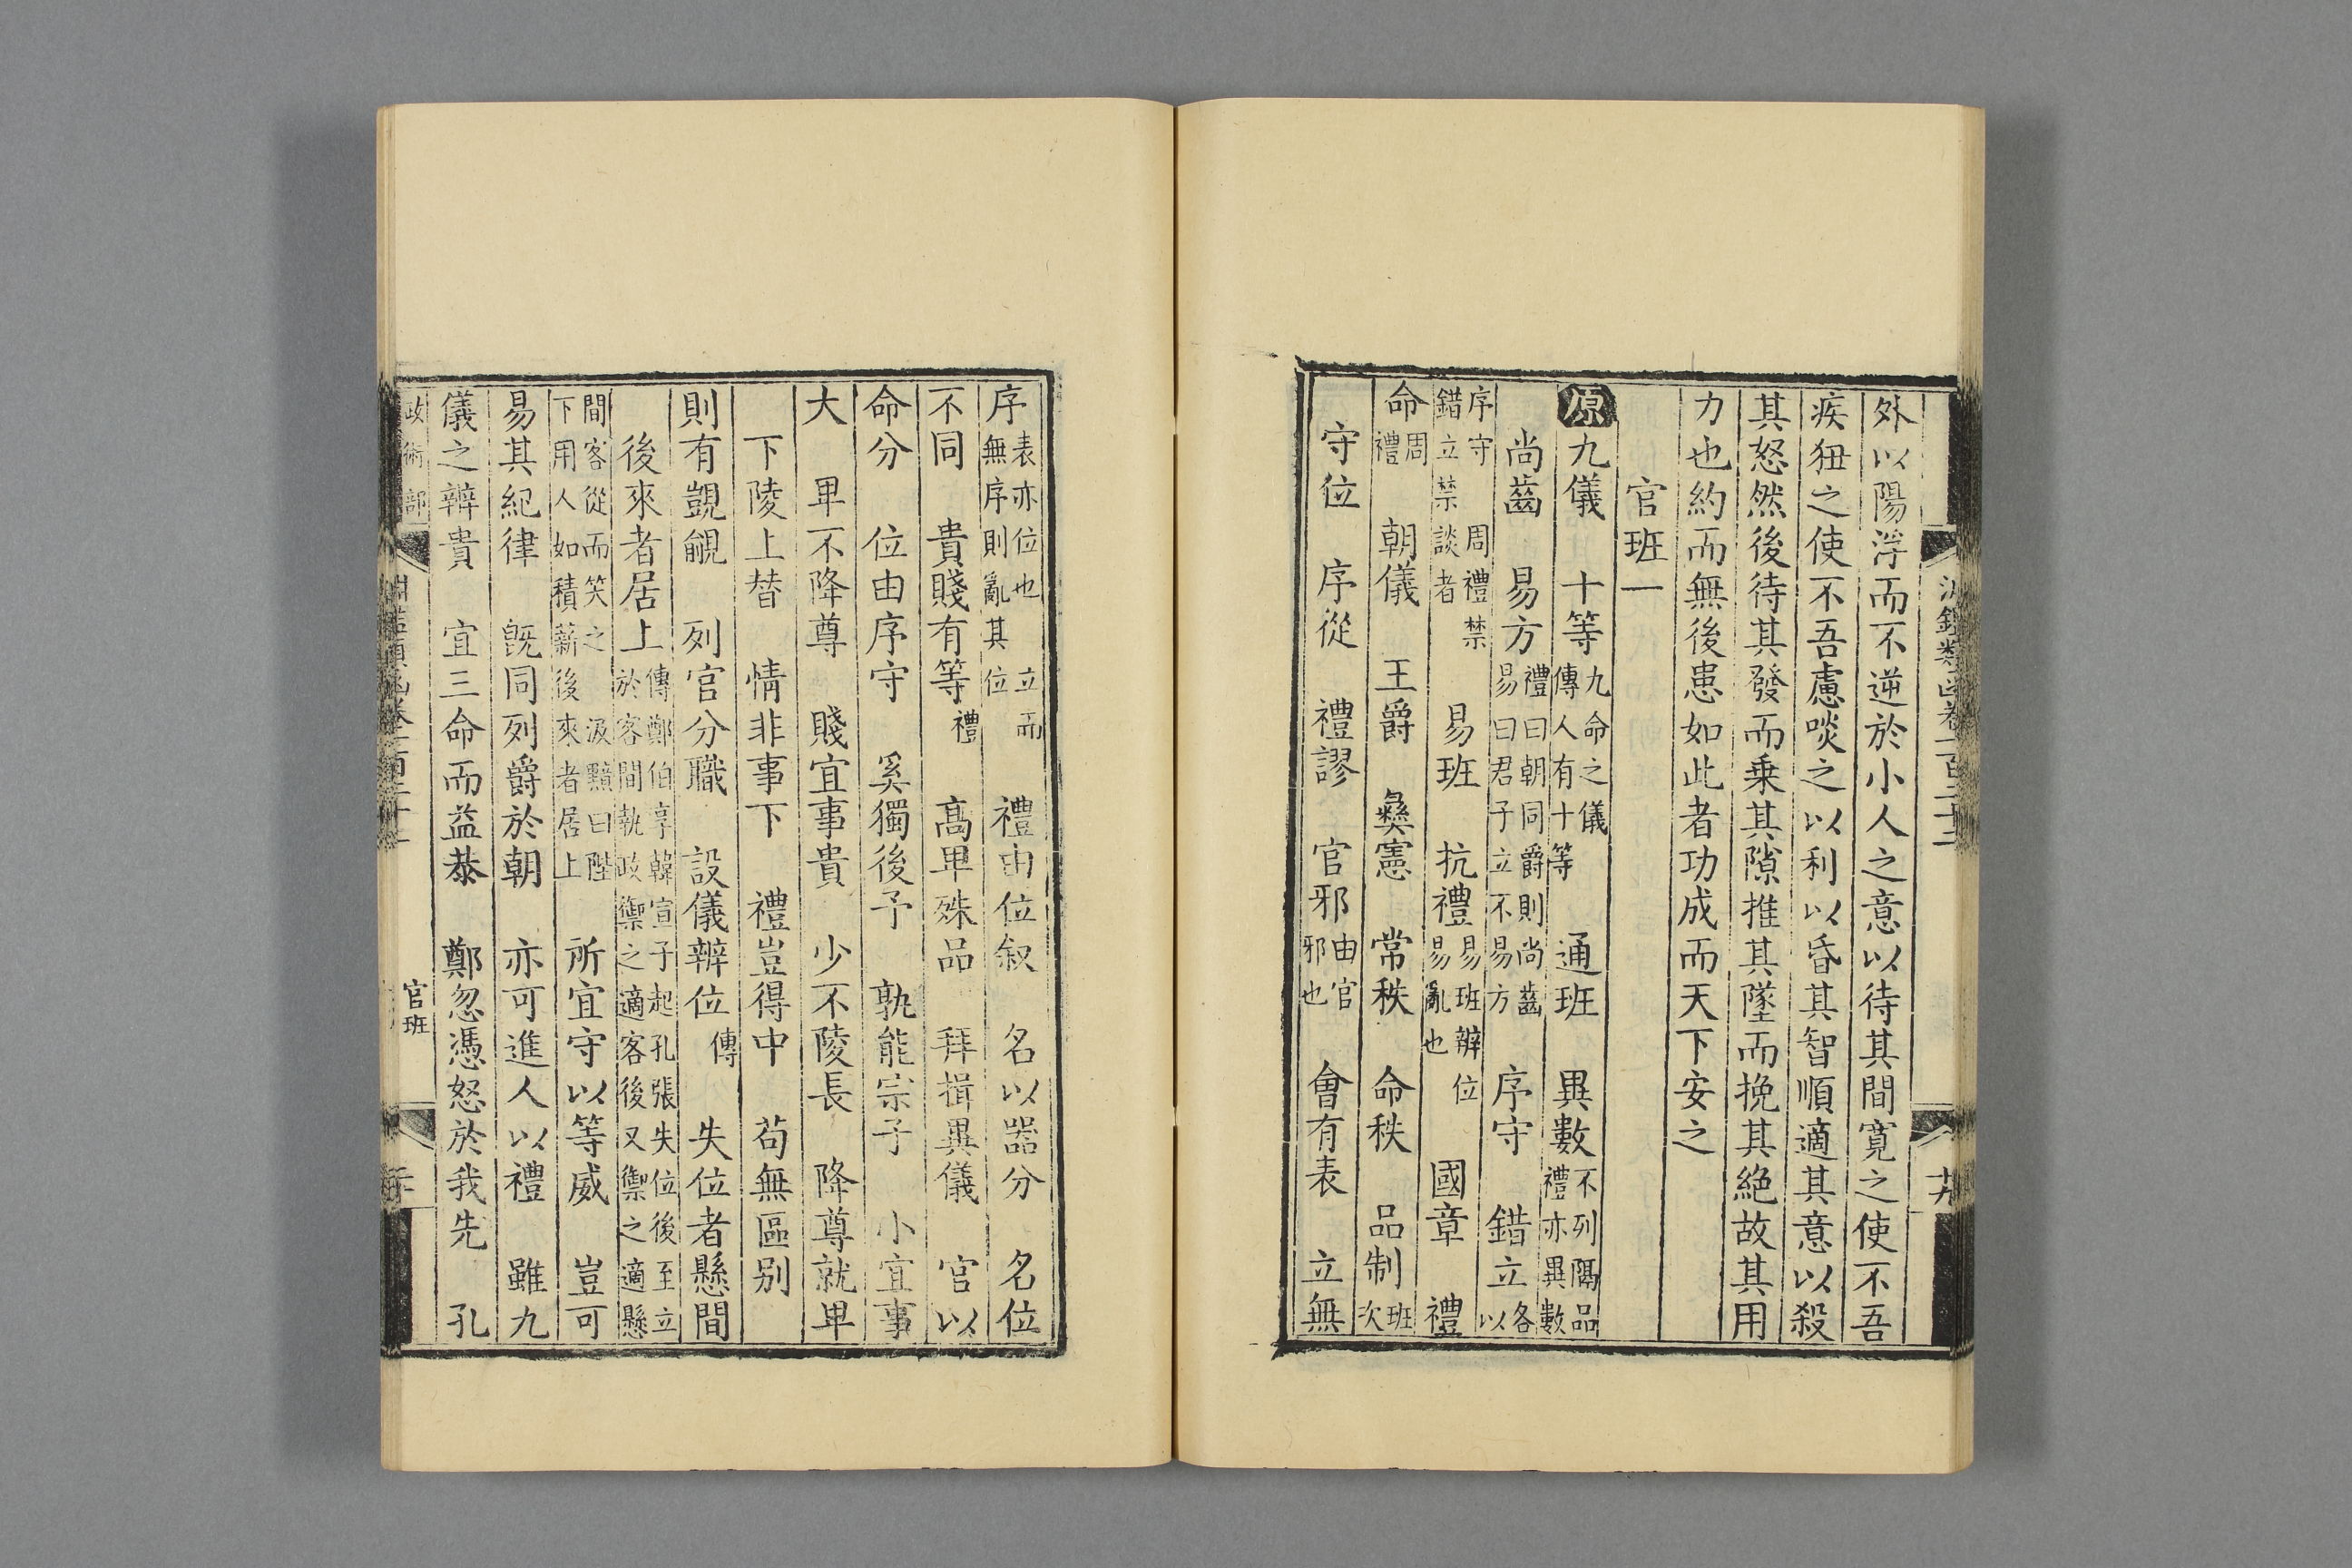 外以陽浮而不逆於小人之意以待其間寛之使不吾
疾狃之使不吾慮啖之以利以昏其智順適其意以殺
其怒然後待其發而乗其隙推其墜而挽其絶故其用
力也約而無後患如此者功成而天下安之
官班一
原九儀 十等九命之儀傳人有十等 通班 異數不列隅品禮亦異數
尚齒 易方禮曰朝同爵則尚齒易曰君子立不易方 序守 錯立各以
序守錯立 周禮禁禁談者 易班 抗禮易班辨位易亂也 國章 禮
命周禮 朝儀 王爵 彝憲 常秩 命秩 品制班次
守位 序從 禮謬 官邪由官邪也 會有表 立無
序表亦位也無序則亂其位 立而 禮由位叙 名以器分 名位
不同 貴賤有等禮 髙卑殊品 拜揖異儀 官以
命分 位由序守 奚獨後予 孰能宗子 小宜事
大 卑不降尊 賤宜事貴 少不陵長 降尊就卑
下陵上替 情非事下 禮豈得中 苟無區别
則有覬覦 列官分職 設儀辨位傳 失位者懸間
後來者居上傳鄭伯享韓宣子起孔張失位後至立於客間執政禦之適客後又禦之適懸
間客從而笑之 汲黯曰陛下用人如積薪後來者居上 所宜守以等威 豈可
易其紀律 旣同列爵於朝 亦可進人以禮 雖九
儀之辨貴 宜三命而益恭 鄭忽憑怒於我先 孔
政術部 官班